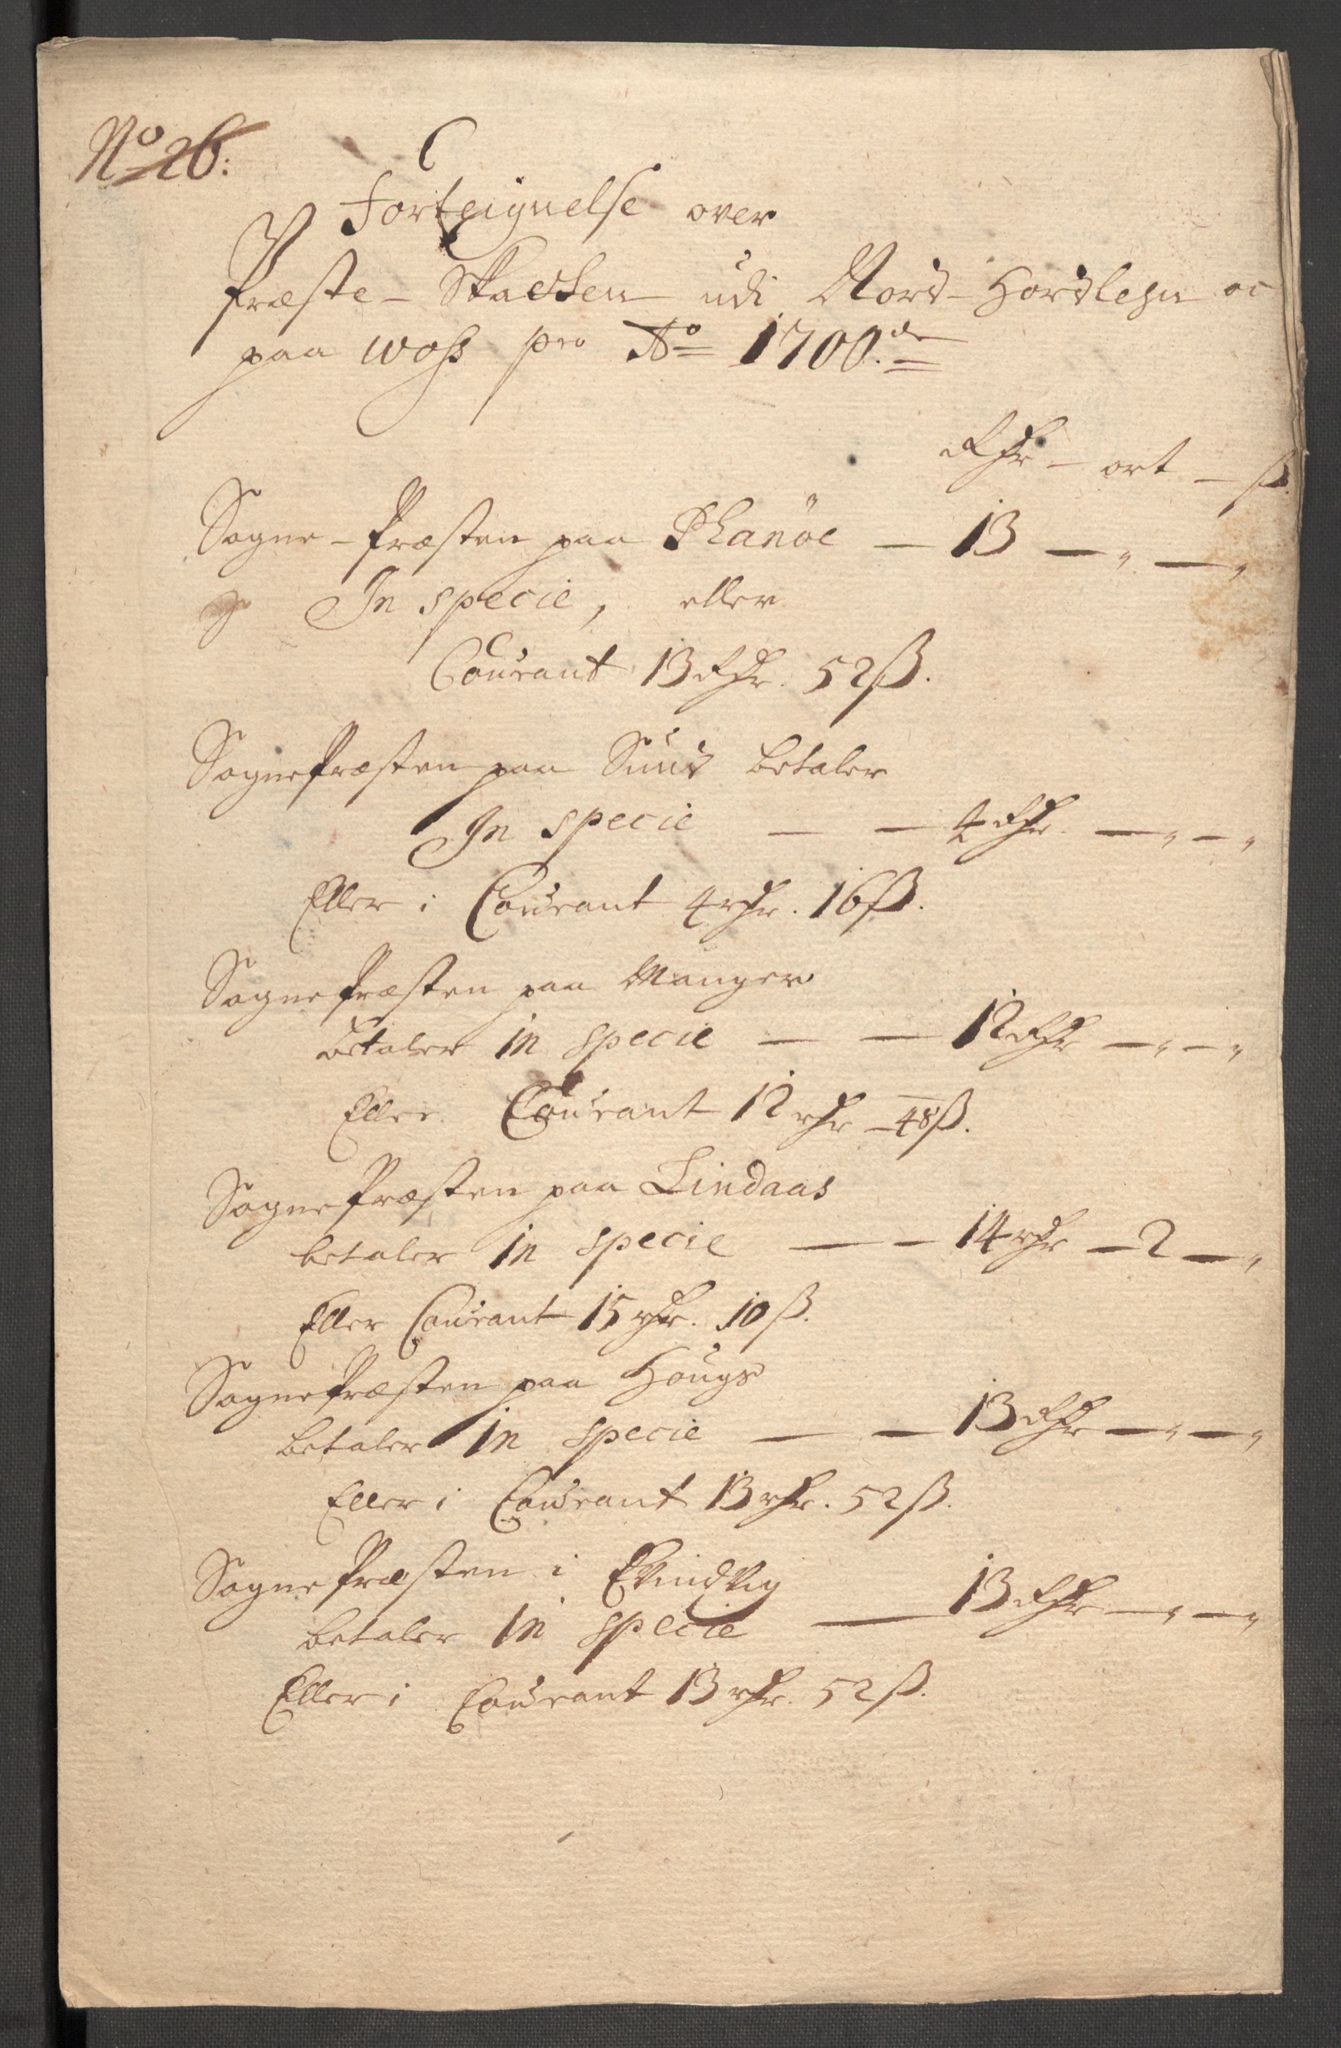 No 26:
Forteignelse over
Præste-Skatten udi Nord-Hordlehn oc
paa Woss pro Ao 1700.de
Rdr - ort - ß.
Sogne-Præsten paa Phanöe - 13 - " - "
In specie, eller
Courant 13 Rdr. 52 ß.
SognePræsten paa Suus betaler
In specie - - 4 Rdr. - " - "
Eller i Courant 4 rdr. 16 ß.
SognePræsten paa Manger
betaler in specie - - 12 Rdr - " - "
Eller Courant 12 rdr - 48 ß.
SognePræsten paa Lindaas
betaler in specie - - 14 rdr - 2 - "
Eller Courant 15 rdr. 10 ß.
SognePræsten paa Hougs
betaler in specie - - 13 Rdr - " - "
Eller i Courant 13 rdr. 52 ß.
SognePræsten i Evindvig
betaler in specie - 13 Rdr - " - "
Eller i Courant 13 rdr. 52 ß.